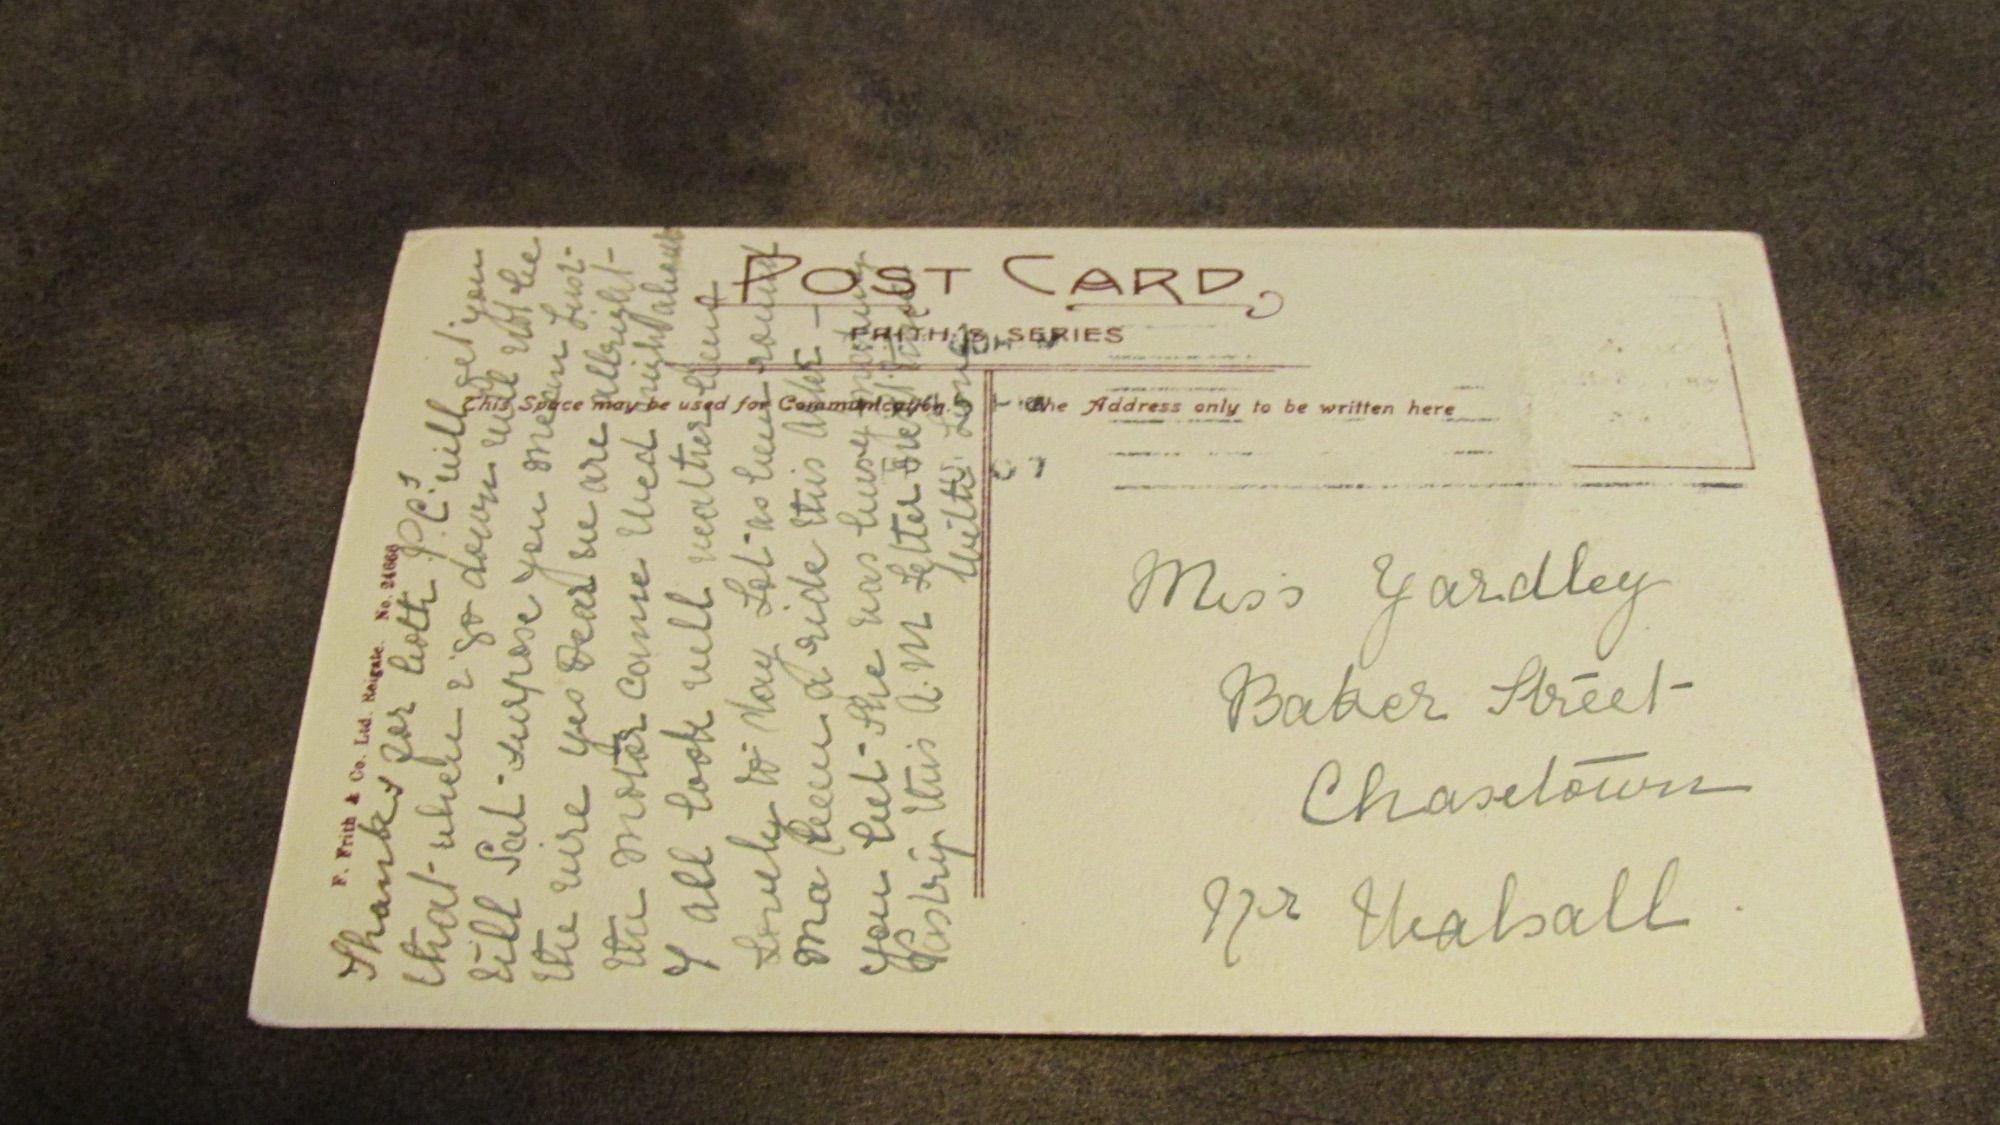 POST CARD
FRITH'S SERIES
This Space may be used for Communication.
The Address only to be written here
F. Frith & Co. Ltd. Reigate. No. 24666
Thanks for both P.C's
that when I go down will get you
till Sat - surpose you mean Just -
the wire yes Dear we are allright -
the motor came Wed night about
& all look well weather
Lovely to day Lot as been round
Ma been a ride this after -
you but - she was busy making
Pastry this A.M Letter
With Love
Miss Yardley
Baker Street
Chasetown
Nr Walsall